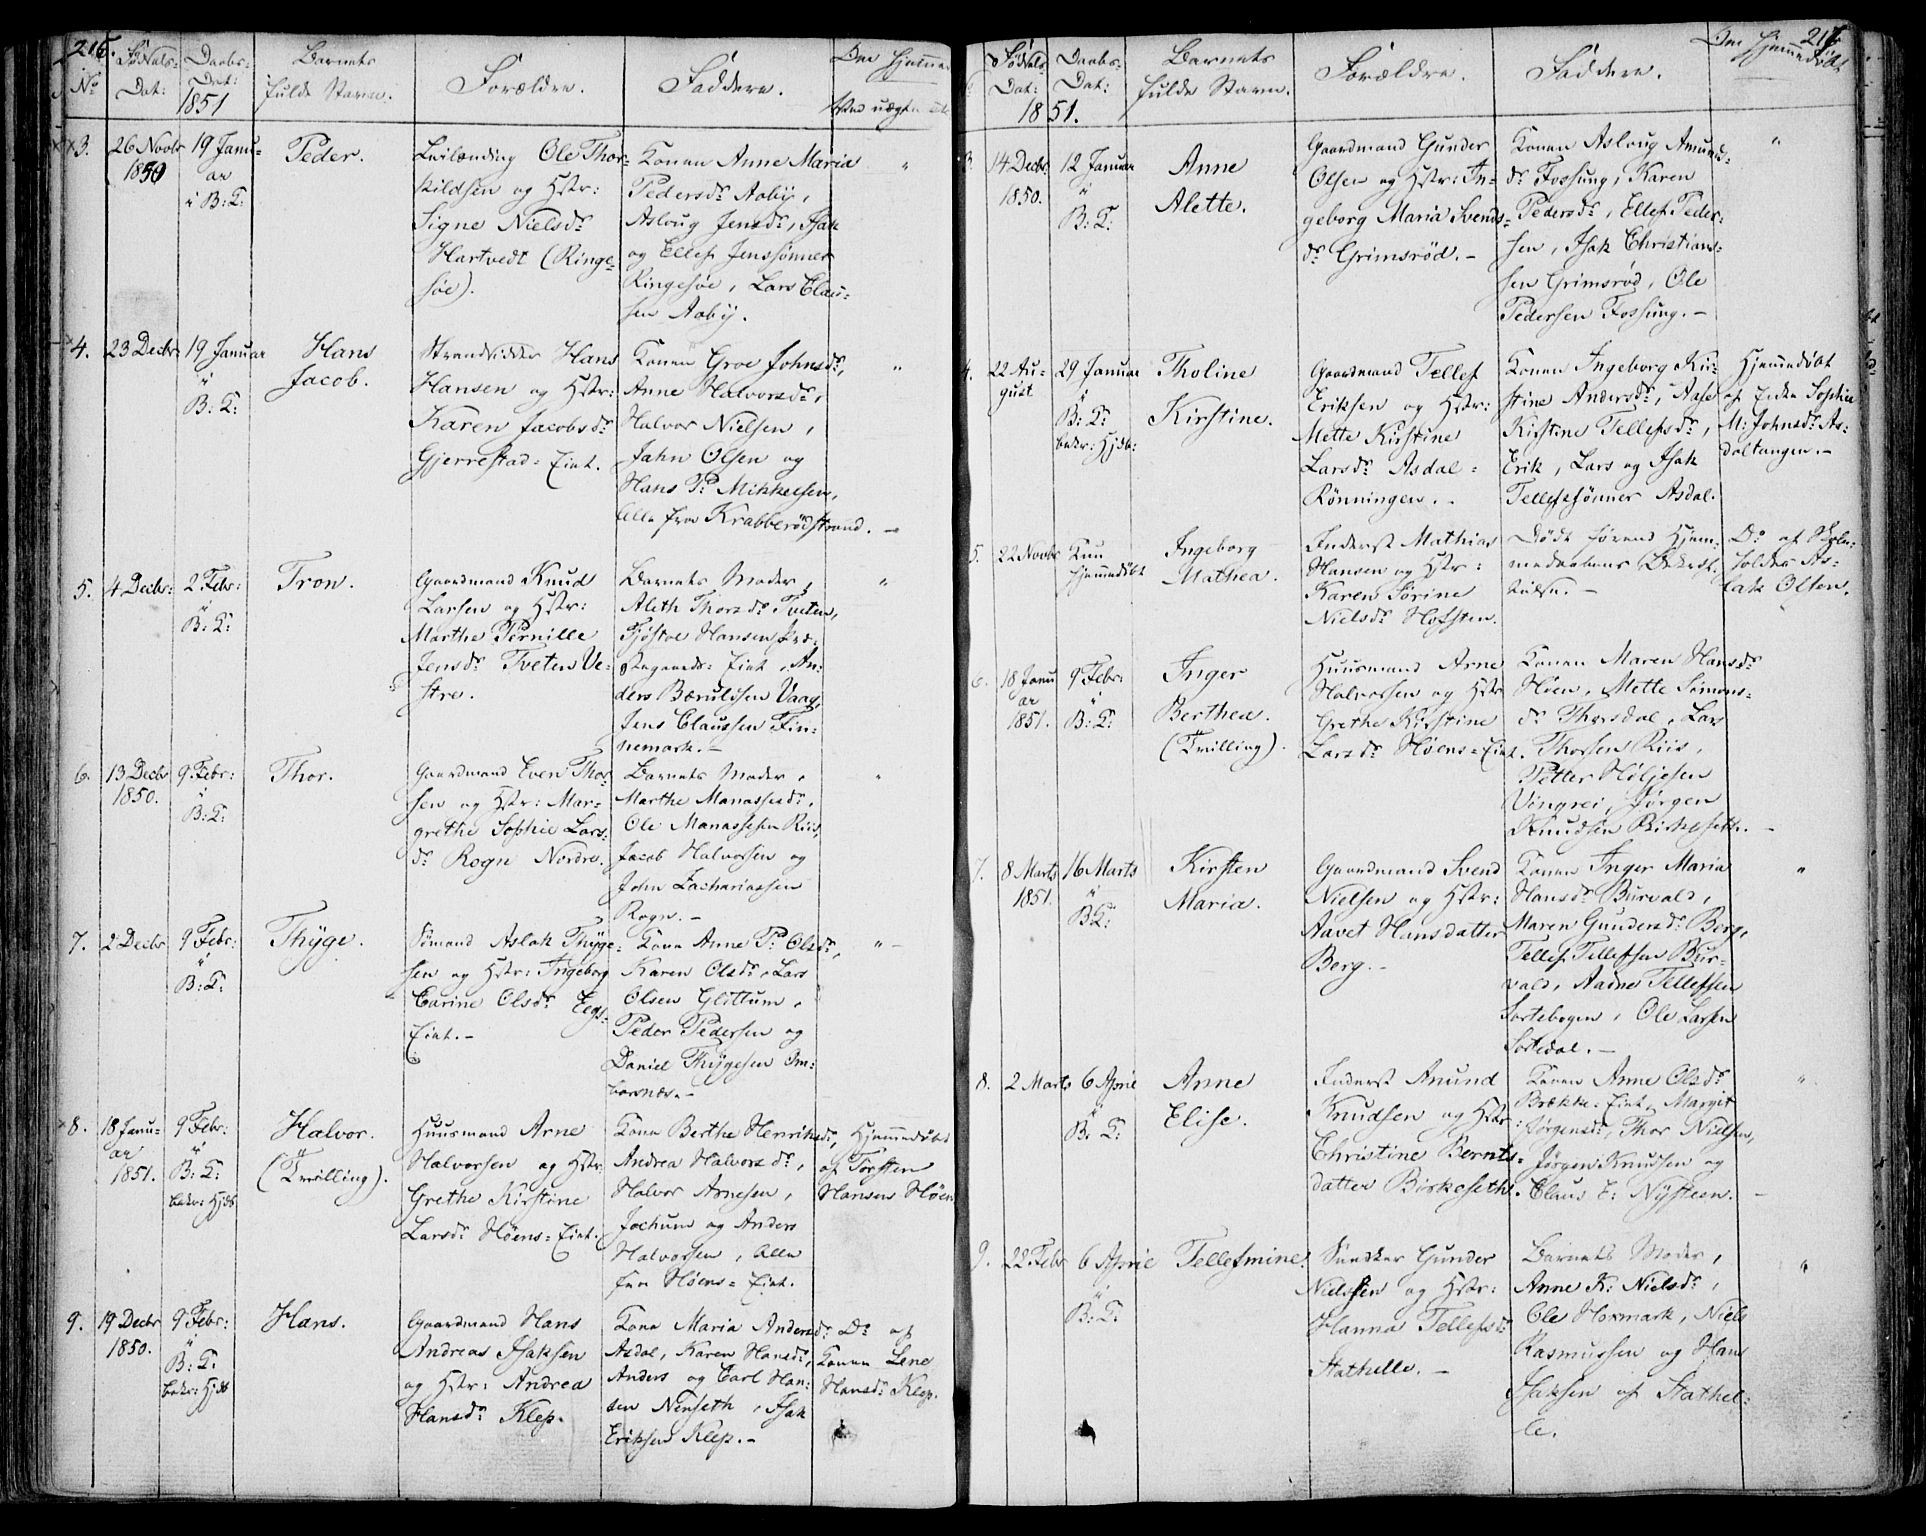 216.
No
Fødsels-
Dat:
Daabs-
Dat:
1851
Barnets
fulde Navn.
Forældre.
Faddere.
Om Hjemme
3.
26 Novbr
1850
19 Janu-
ar
i B: K:
Peder.
Leilænding Ole Thor-
kildsen og Hstr:
Signe Nielsdr
Hartvedt (Ringe-
søe).
Konen Anne Maria
Pedersdr Aaby,
Aslaug Jensdr, Isak
og Ellef Jenssønner
Ringesøe, Lars Clau-
sen Aaby.
"
4.
23 Decbr
19 Januar
i
B: K:
Hans
Jacob.
Strandsidder Hans
Hansen og Hstr:
Karen Jacobsdr
Gjerrestad-Eiet.
Konen Groe Johnsdr,
Anne Halvorsdr,
Halvor Nielsen,
Jahn Olsen og
Hans Pr Mikkelsen,
alle fra Krabberødstrand. -
"
5.
4 Decbr:
2 Febr:
i
B: K:
Tron.
Gaardmand Knud
Larsen og Hstr:
Marthe Pernille
Jensdr Tveten Ve-
stre.
Barnets Moder,
Aleth Thorsdr Tveten,
Tjøstol Hansen Præ-
stegaards-Eiet, An-
ders Bærulfsen Vaag,
Jens Claussen Fin-
nemark. -
"
6.
13 Decbr
1850.
9 Febr:
i
B: K:
Thor.
Gaardmand Even Thor-
sen og Hstr: Mar-
grethe Sophie Lars-
dr Rogn Nordre.
Barnets Moder,
Marthe Manassesdr,
Ole Manassesen Riis,
Jacob Halvorsen og
John Zachariassen
Rogn. -
"
7.
2 Decbr
9 Febr:
i
B: K:
Thyge.
Sømand Aslak Thyge-
sen og Hstr: Ingeborg
Carine Olsdr Eegs-
Eiet. -
Kone Anne Pr Olsdr,
Karen Olsdr, Lars
Olsen Glittum,
Peder Pedersen og
Daniel Thygesen Om-
borsnæs. -
" -
8.
18 Janu-
ar
1851.
9 Febr:
i
B: K:
bekr: Hjdb
Halvor.
(Tvilling).
Huusmand Arne
Halvorsen og Hstr
Grethe Kirstine
Larsdr Høens-Eiet.
Kone Berthe Henriksdr,
Andrea Halvorsdr,
Halvor Arnesen,
Jochum og Anders
Halvorsen, alle
fra Høens-Eiet.
Hjemmedøbt
af Torsten
Hansen Høen
9.
19 Decbr
1850.
9 Febr:
i
B: K:
bekr: Hjdb
Hans.
Gaardmand Hans
Andreas Isaksen
og Hstr: Andrea
Hansdr Klep.
Kone Maria Andersdr
Asdal, Karen Hansdr,
Anders og Carl Han-
sen Nenseth, Isak
Eriksen Klep. -
Do af
Konen Lene
Hansdr Klep.
217
Fødsels-
Dat:
Daabs-
Dat:
1851.
Barnets
fulde Navn.
Forældre.
Faddere.
Om Hjemmedøbt
3.
14 Decbr
1850.
12 Januar
i
B: K:
Anne
Alette.
Gaardmand Gunder
Olsen og Hstr: In-
geborg Maria Svends-
dr Grimsrød. -
Konen Aslaug Amunds-
dr Fossung, Karen
Pedersdr, Ellef Peder-
sen, Isak Christian-
sen Grimsrød, Ole
Pedersen Fossung. -
"
4.
22 Au-
gust
29 Januar
i
B: K:
bekr: Hjdb:
Tholine
Kirstine.
Gaardmand Tellef
Eriksen og Hstr:
Mette Kirstine
Larsdr Asdal-
Rønningen. -
Konen Ingeborg Kir-
stine Andersdr, Aase
Kirstine Tellefsdr,
Erik, Lars og Isak
Tellefssønner Asdal.
Hjemmedøbt
af Enken Sophie
M: Johnsdr As-
daltangen. -
5.
22 Novbr
Kun
hjemmedøbt
Ingeborg
Mathea.
Inderst Mathias
Hansen og Hstr:
Karen Sørine
Nielsdr Hofsten.
Døde førend Hjem-
medaabens Bekræf-
telse. -
Do af Skole-
holder As-
lak Olsen.
6.
18 Janu
ar
1851.
9 Febr:
i
B: K:
Inger
Berthea.
(Tvilling).
Huusmand Arne
Halvorsen og Hstr
Grethe Kirstine
Larsdr Høens-Eiet.
Konen Maren Hansdr
Høen, Mette Simons-
dr Thorsdal, Lars
Thorsen Riis,
Petter Høljesen
Vingrei, Jørgen
Knudsen Birkeseth. -
7.
8 Marts
1851.
16 Marts
i
BK:
Kirsten
Maria.
Gaardmand Svend
Nielsen og Hstr:
Aavet Hansdatter
Berg. -
Konen Inger Maria
Hansdr Burvald,
Maren Gundersdr Berg,
Tellef Tellefsen Bur-
vald, Aadne Tellefsen
Sortebogen, Ole Larsen
Sortedal. -
"
8.
2 Marts
6 April
i
B: K:
Anne
Elise.
Inderst Anund
Knudsen og Hstr:
Christine Bernts-
datter Birkeseth.
Konen Anne Olsdr
Brække-Eiet, Margit
Jørgensdr, Thor Nielsen,
Jørgen Knudsen og
Claus E: Nysteen. -
"
9.
22 Febr
6 April
i
B: K:
Tellefmine.
Snedker Gunder
Nielsen og Hstr:
Hanna Tellefsdr
Stathelle. -
Barnets Moder,
Anne K: Nielsdr,
Ole Hormark, Niels
Rasmussen og Hans
Isaksen af Stathel-
le.
"